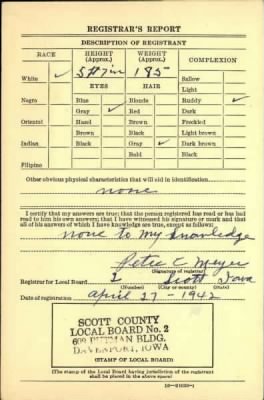 REGISTRAR'S REPORT
DESCRIPTION OF REGISTRANT
RACE HEIGHT (Approx.) WEIGHT (Approx.) COMPLEXION
White ✓ 5 ft 7 in 185 Sallow
EYES HAIR Light
Negro Blue Blonde Ruddy ✓
Gray ✓ Red Dark
Oriental Hazel Brown Freckled
Brown Black Light brown
Indian Black Gray ✓ Dark brown
Bald Black
Filipino
Other obvious physical characteristics that will aid in identification
none
I certify that my answers are true; that the person registered has read or has had
read to him his own answers; that I have witnessed his signature or mark and that
all of his answers of which I have knowledge are true, except as follows:
none to my knowledge
Petee C. Meyer
(Signature of registrar)
Registrar for Local Board 2 Scott Iowa
(Number) (City or county) (State)
Date of registration April 27 - 1942
SCOTT COUNTY
LOCAL BOARD No. 2
609 PUTNAM BLDG.
DAVENPORT, IOWA
(STAMP OF LOCAL BOARD)
(The stamp of the Local Board having jurisdiction of the registrant
shall be placed in the above space)